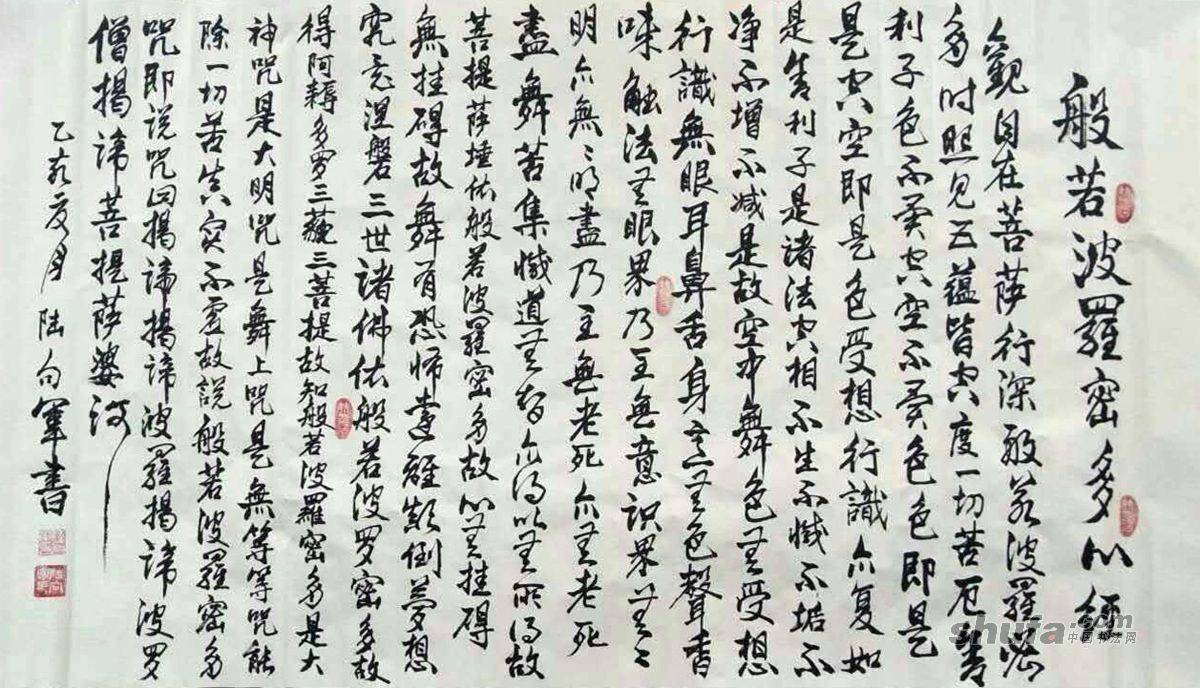 般若波羅密多心經
觀自在菩薩行深般若波羅密
多时照见五蕴皆空度一切苦厄舍
利子色不异空空不异色色即是
是空空即是色受想行識亦复如
是舍利子是诸法空相不生不憾不垢不
净不增不减是故空中舞色无受想
行識無眼耳鼻舌身意无色聲香
味触法无眼界乃至無意识界无无
明亦無〻明盡乃至無老死亦无老死
盡舞苦集憾道无智亦得以无所得故
菩提萨埵依般若波羅密多故心无挂碍
無挂碍故舞有恐怖遠離顛倒夢想
究竟涅磐三世诸佛依般若波罗密多故
得阿耨多罗三藐三菩提故知般若波羅密多是大
神咒是大明咒是舞上咒是無等等咒能
除一切苦真实不虚故說般若波羅密多
咒即说咒曰揭谛揭谛波羅揭谛波罗
僧揭谛菩提萨婆诃
乙亥 月 陆向軍書
shufa.com
中国书法网